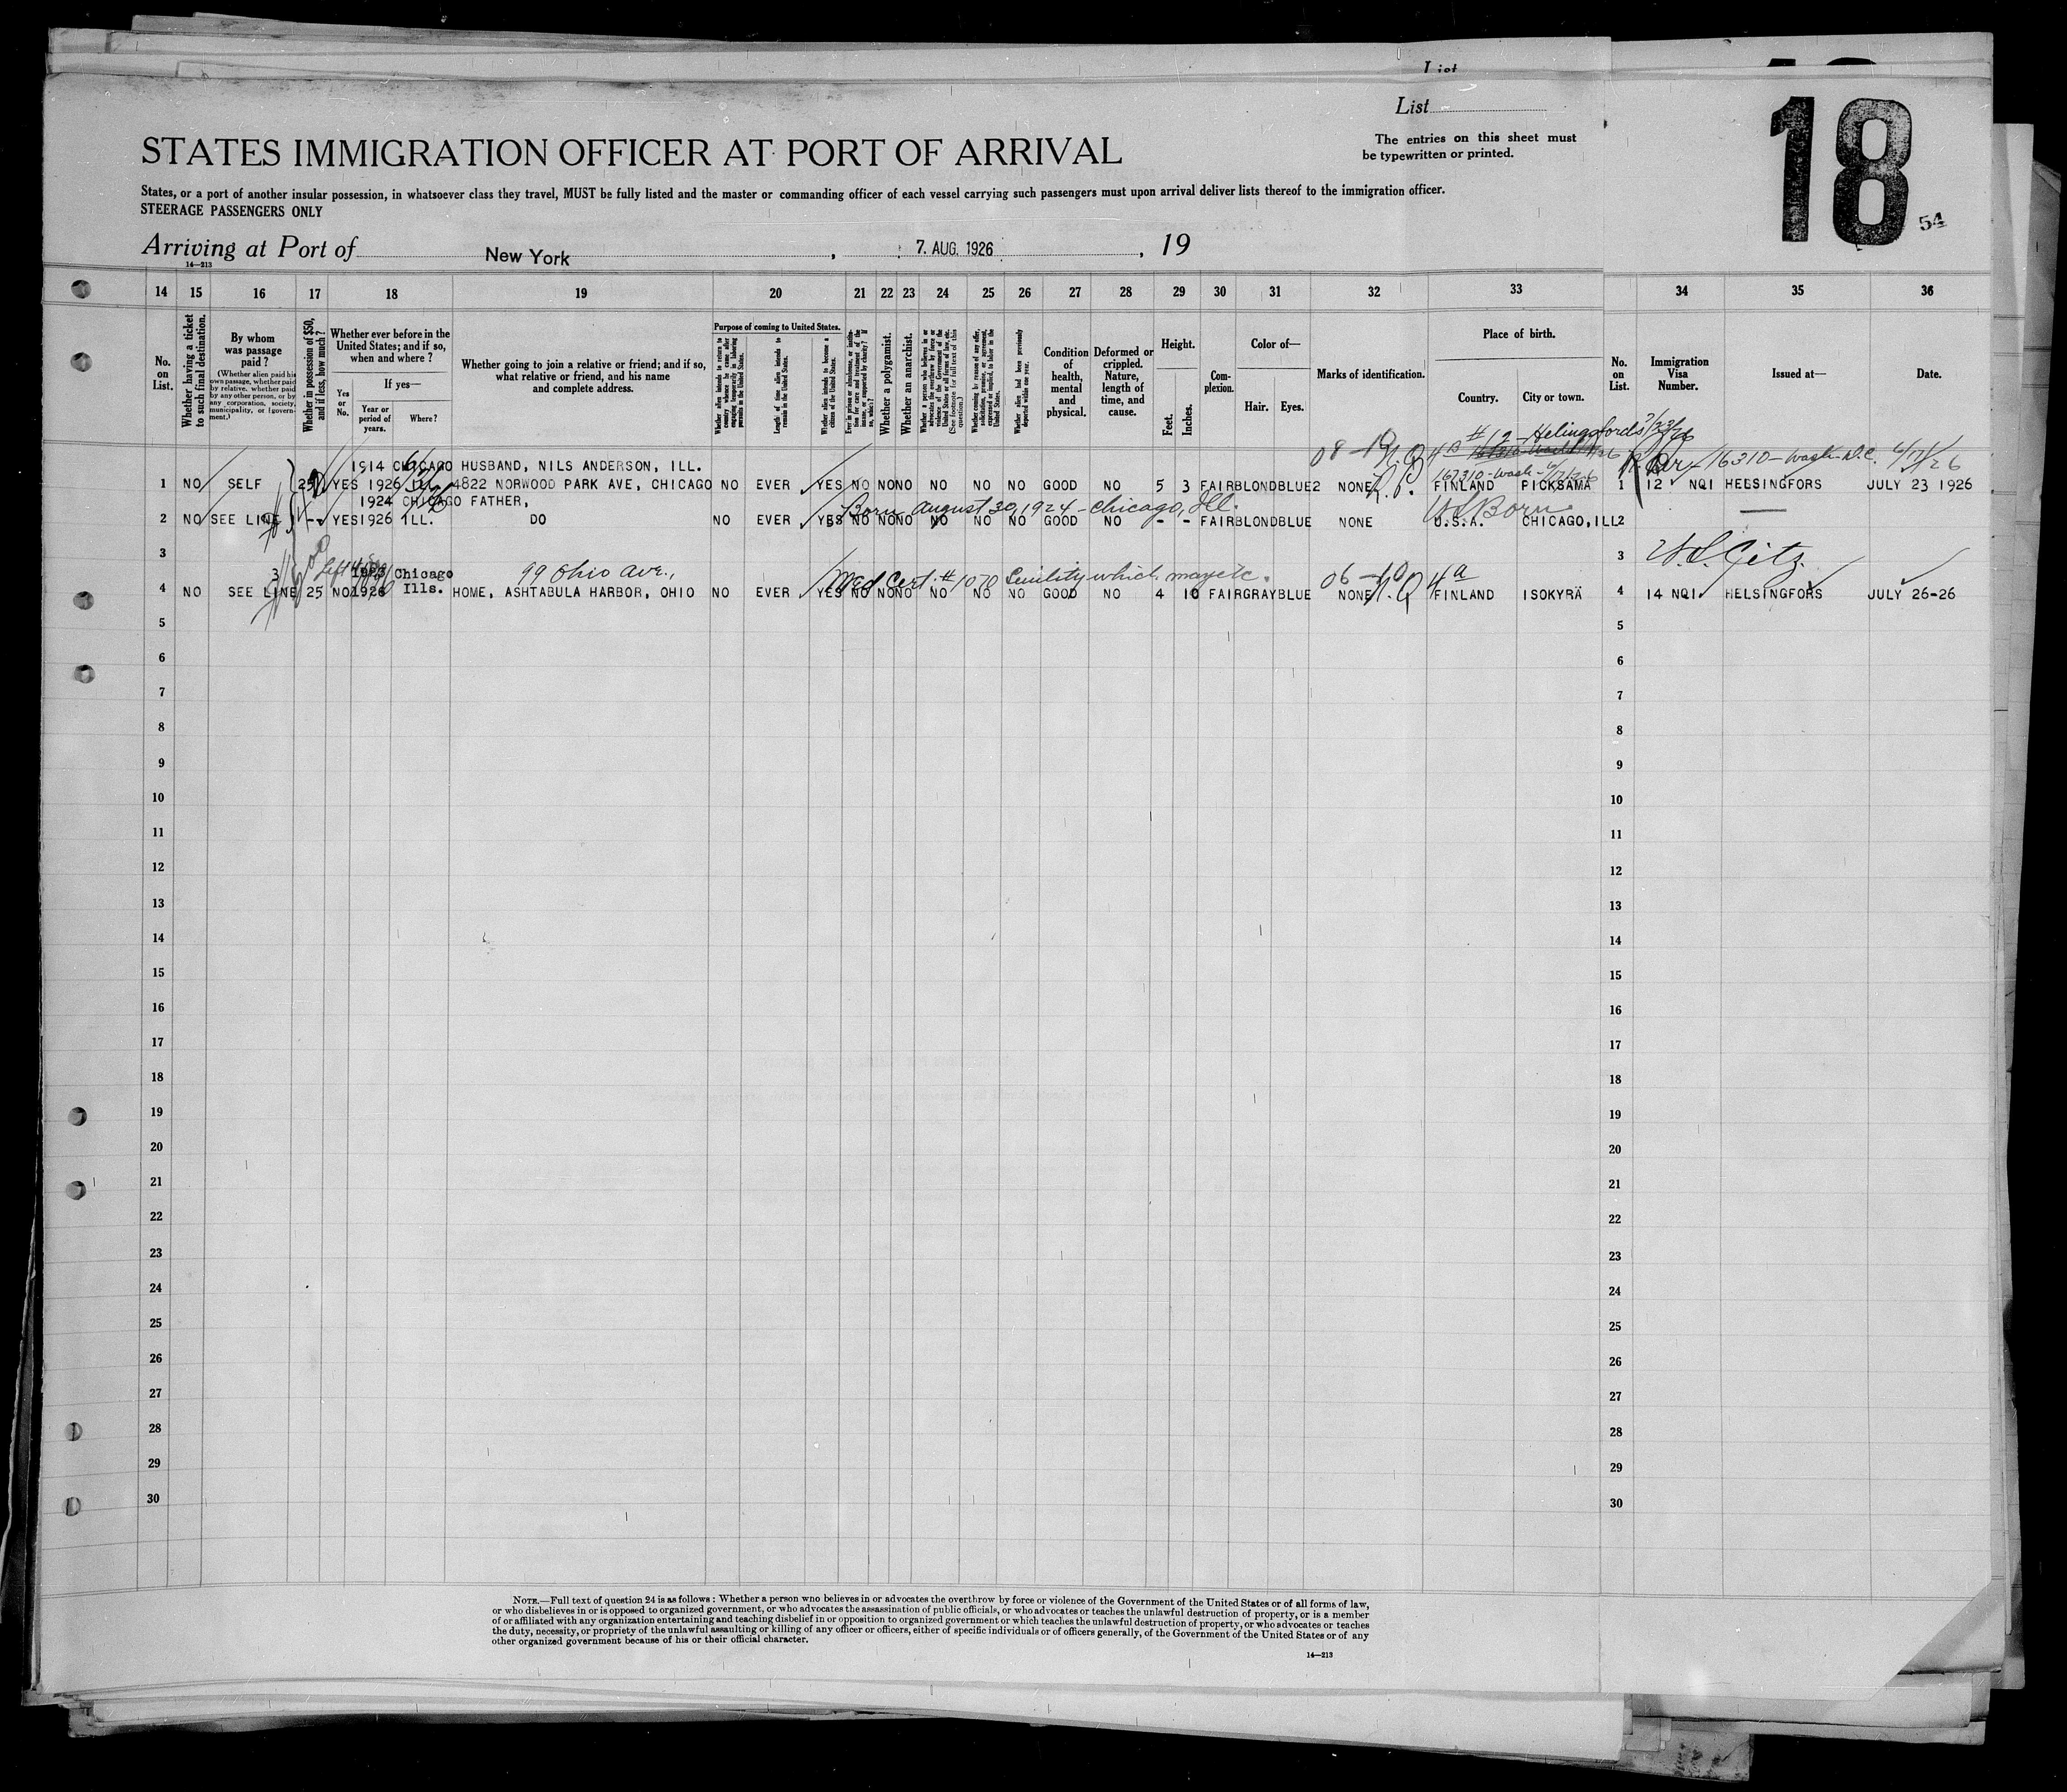 List
List
18
54
The entries on this sheet must
be typewritten or printed.
STATES IMMIGRATION OFFICER AT PORT OF ARRIVAL
States, or a port of another insular possession, in whatsoever class they travel, MUST be fully listed and the master or commanding officer of each vessel carrying such passengers must upon arrival deliver lists thereof to the immigration officer.
STEERAGE PASSENGERS ONLY
Arriving at Port of New York, 7. AUG. 1926, 19
14—213
14 15 16 17 18 19 20 21 22 23 24 25 26 27 28 29 30 31 32 33 34 35 36
No. on List.
Whether having a ticket to such final destination.
By whom was passage paid?
(Whether alien paid his own passage, whether paid by relative, whether paid by any other person, or by any corporation, society, municipality, or government.)
Whether in possession of $50, and if less, how much?
Whether ever before in the United States; and if so, when and where?
Yes or No.
If yes—
Year or period of years.
Where?
Whether going to join a relative or friend; and if so, what relative or friend, and his name and complete address.
Purpose of coming to United States.
Whether alien intends to return to country whence he came after engaging temporarily in laboring pursuits in the United States.
Length of time alien intends to remain in the United States.
Whether alien intends to become a citizen of the United States.
Whether a polygamist.
Whether an anarchist.
Whether alien had been previously deported within one year.
Condition of health, mental and physical.
Deformed or crippled. Nature, length of time, and cause.
Height.
Feet.
Inches.
Complexion.
Color of—
Hair.
Eyes.
Marks of identification.
Place of birth.
Country.
City or town.
No. on List.
Immigration Visa Number.
Issued at—
Date.
#12 - Helingsfords 7/23/26
1914 CHICAGO HUSBAND, NILS ANDERSON, ILL.
16310 - Wash D.C. 6/17/26
1 NO SELF 25 YES 1926 ILL. 4822 NORWOOD PARK AVE, CHICAGO NO EVER YES NO NO NO NO NO NO GOOD NO 5 3 FAIR BLOND BLUE 2 NONE R.P. FINLAND PICKSAMA 1 12 NQI HELSINGFORS JULY 23 1926
1924 CHICAGO FATHER,
Born August 30, 1924 - Chicago, Ill.
US Born
2 NO SEE LINE 1 -- YES 1926 ILL. DO NO EVER YES NO NO NO NO NO NO GOOD NO - - FAIR BLOND BLUE NONE U.S.A. CHICAGO, ILL 2
3 3 U.S. Citz.
3 1923 Chicago 99 Ohio Ave., Med Cert. #1070 Senility which may etc. 06-10 4a
4 NO SEE LINE 25 NO 1926 Ills. HOME, ASHTABULA HARBOR, OHIO NO EVER YES NO NO NO NO NO NO GOOD NO 4 10 FAIR GRAY BLUE NONE N.Q FINLAND ISOKYRÄ 4 14 NQI HELSINGFORS JULY 26-26
5 5
6 6
7 7
8 8
9 9
10 10
11 11
12 12
13 13
14 14
15 15
16 16
17 17
18 18
19 19
20 20
21 21
22 22
23 23
24 24
25 25
26 26
27 27
28 28
29 29
30 30
NOTE.—Full text of question 24 is as follows: Whether a person who believes in or advocates the overthrow by force or violence of the Government of the United States or of all forms of law,
or who disbelieves in or is opposed to organized government, or who advocates the assassination of public officials, or who advocates or teaches the unlawful destruction of property, or is a member
of or affiliated with any organization entertaining and teaching disbelief in or opposition to organized government or which teaches the unlawful destruction of property, or who advocates or teaches
the duty, necessity, or propriety of the unlawful assaulting or killing of any officer or officers, either of specific individuals or of officers generally, of the Government of the United States or of any
other organized government because of his or their official character.
14—213